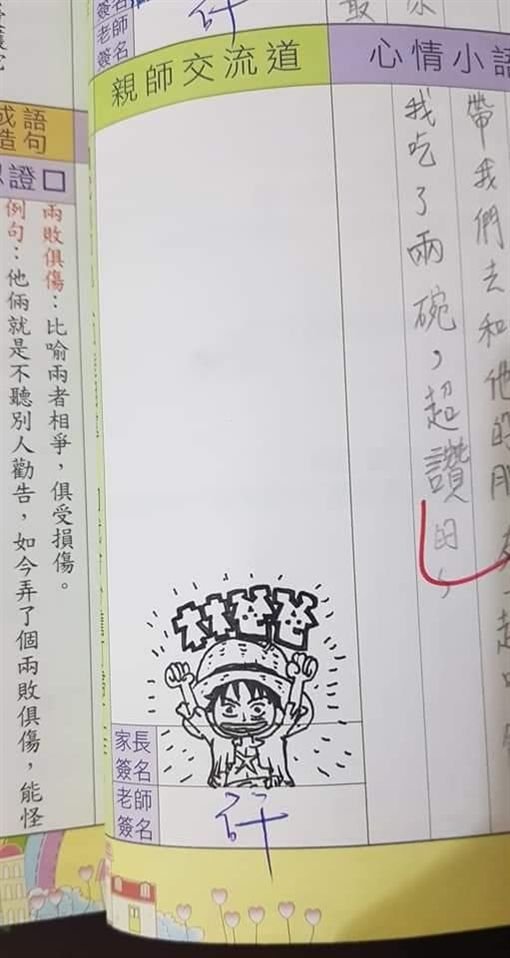 簽名
老師
簽名
許
親師交流道
心情小語
帶我們去和他的朋友一起吃
我吃了兩碗，超讚的，
林爸爸
家長
簽名
老師
簽名
許
成語
造句
證口
兩敗俱傷：比喻兩者相爭，俱受損傷。
例句：他倆就是不聽別人勸告，如今弄了個兩敗俱傷，能怪